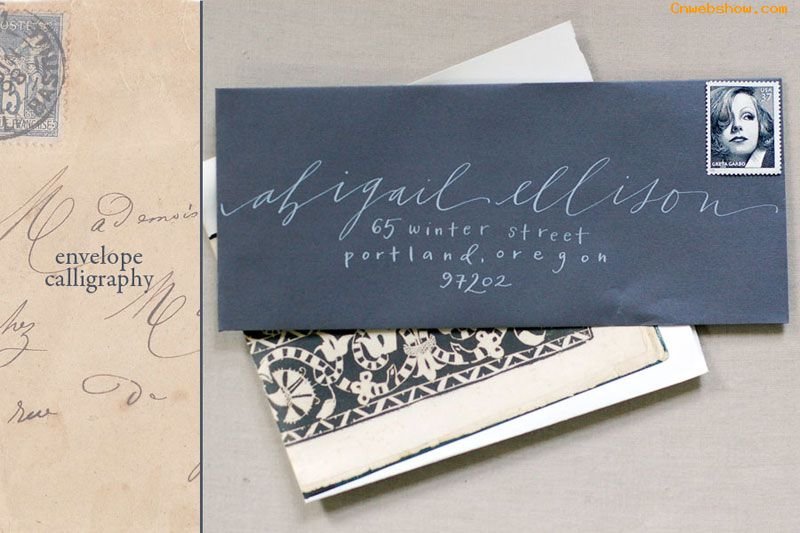 Cnwebshow.com
POSTES
15
USA
37
GRETA GARBO
Mademois
envelope
calligraphy
chez
rue de
abigail ellison
65 winter street
portland, oregon
97202